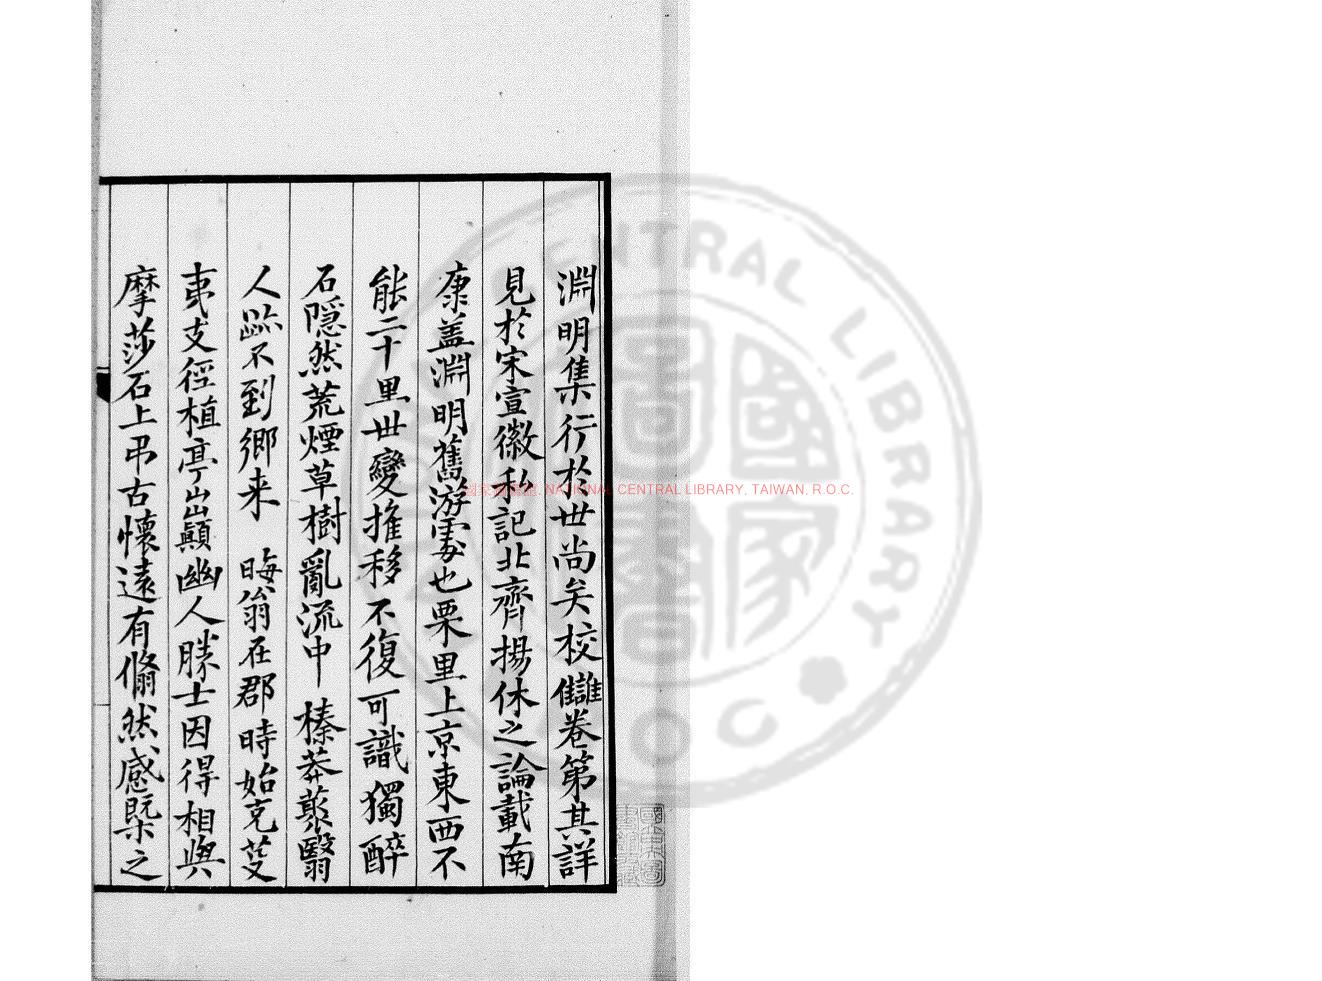 淵明集行於世尚矣校讎卷第其詳
見於宋宣徽私記北齊揚休之論載南
康盖淵明舊游處也栗里上京東西不
能二十里世變推移不復可識獨醉
石隠然荒煙草樹亂流中榛莽蘙翳
人跡不到鄉来晦翁在郡時始克芟
夷支徑植亭山巔幽人勝士因得相與
摩莎石上弔古懷遠有翛然感槩之
國家圖書館, NATIONAL CENTRAL LIBRARY, TAIWAN, R.O.C.
CENTRAL LIBRARY